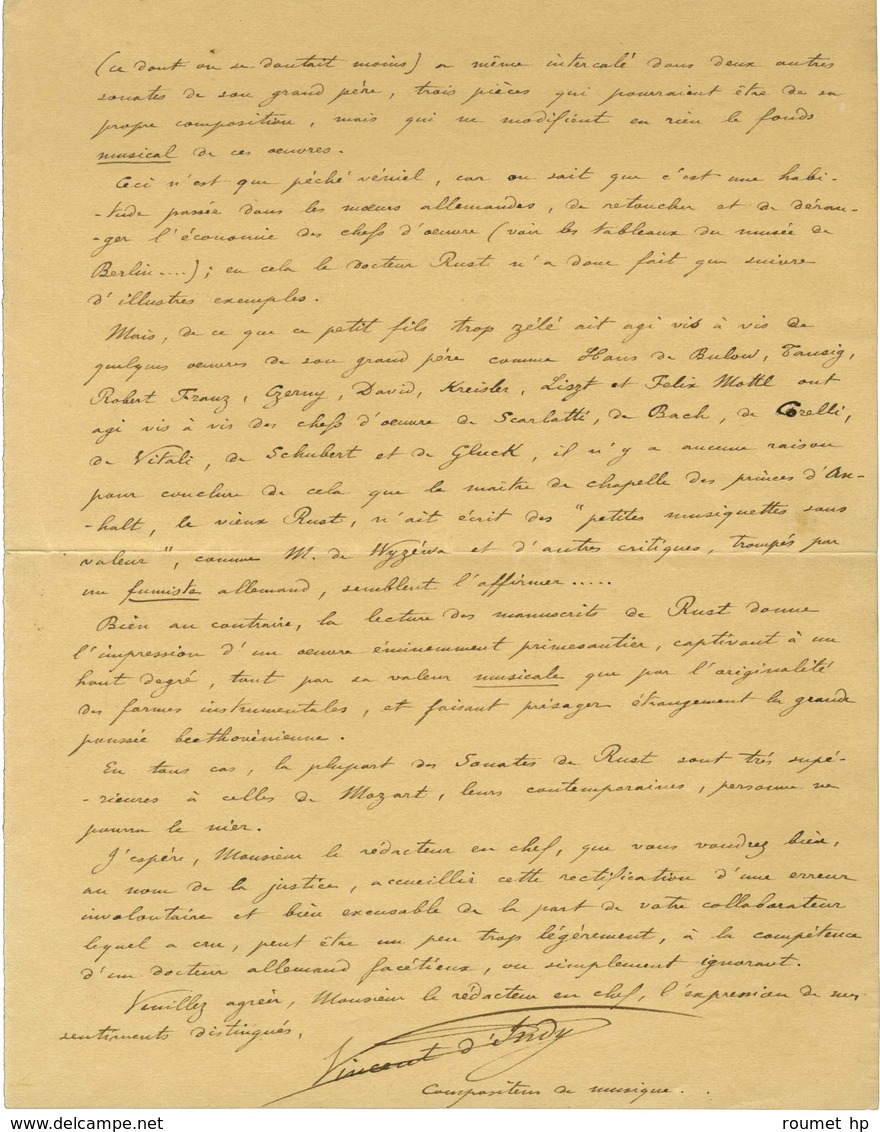 (ce dont on se doutait moins) a même intercalé dans deux autres
sonates de son grand père, trois pièces qui pourraient être de sa
propre composition, mais qui ne modifient en rien le fonds
musical de ces oeuvres.
Ceci n'est que péché véniel, car on sait que c'est une habi-
-tude passée dans les mœurs allemandes, de retoucher et de déran-
-ger l'économie des chefs d'oeuvre (voir les tableaux du musée de
Berlin....); en cela le docteur Rust n'a donc fait que suivre
d'illustres exemples.
Mais, de ce que ce petit fils trop zélé ait agi vis à vis de
quelques oeuvres de son grand père comme Hans de Bulow, Tausig,
Robert Franz, Czerny, David, Kreisler, Liszt et Felix Mottl ont
agi vis à vis des chefs d'oeuvre de Scarlatti, de Bach, de Corelli,
de Vitali, de Schubert et de Gluck, il n'y a aucune raison
pour conclure de cela que le maître de chapelle des princes d'An-
-halt, le vieux Rust, n'ait écrit des "petites musiquettes sans
valeur", comme M. de Wyzéwa et d'autres critiques, trompés par
un fumiste allemand, semblent l'affirmer.....
Bien au contraire, la lecture des manuscrits de Rust donne
l'impression d'un oeuvre éminemment primesautier, captivant à un
haut degré, tant par sa valeur musicale que par l'originalité
des formes instrumentales, et faisant présager étrangement la grande
poussée beethovénienne.
En tous cas, la plupart des Sonates de Rust sont très supé-
-rieures à celles de Mozart, leurs contemporaines, personne ne
pourra le nier.
J'espère, Monsieur le rédacteur en chef, que vous voudrez bien,
au nom de la justice, accueillir cette rectification d'une erreur
involontaire et bien excusable de la part de votre collaborateur
lequel a cru, peut être un peu trop légèrement, à la compétence
d'un docteur allemand facétieux, ou simplement ignorant.
Veuillez agréer, Monsieur le rédacteur en chef, l'expression de mes
sentiments distingués,
Vincent d'Indy
compositeur de musique.
roumet hp